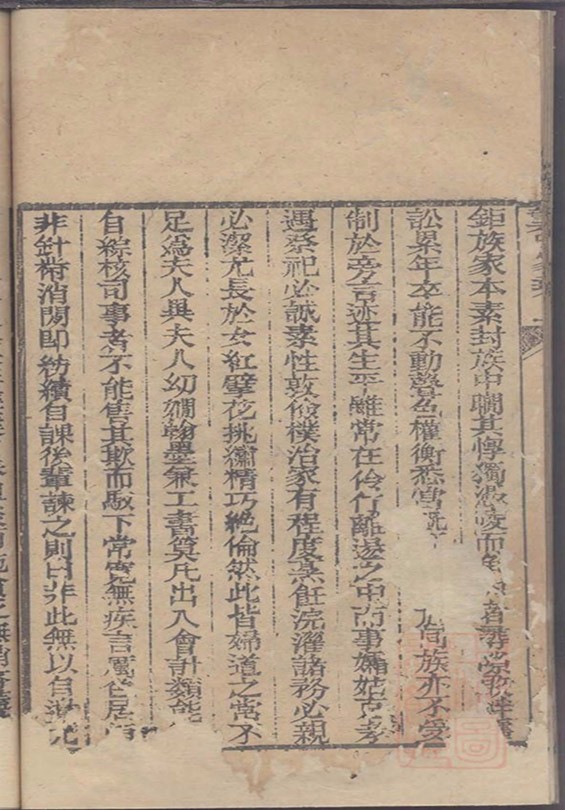 鉅族家本素封族中瞷其惸獨
訟累年卒能不動聲色權衡悉當 族亦不受
制於旁言迹其生平雖常在伶仃離逖之中而事孀姑克孝
遇祭祀必誠素性敦儉樸治家有程度烹飪浣濯諸務必親
必潔尤長於女紅擘花挑繡精巧絕倫然此皆婦道之常不
足爲夫人異夫人幼嫺翰墨兼工書算凡出入會計類能
自綜核司事者不能售其欺而馭下常寬無疾言厲色居
非針黹消閒即紡績自課後輩諫之則曰非此無以自